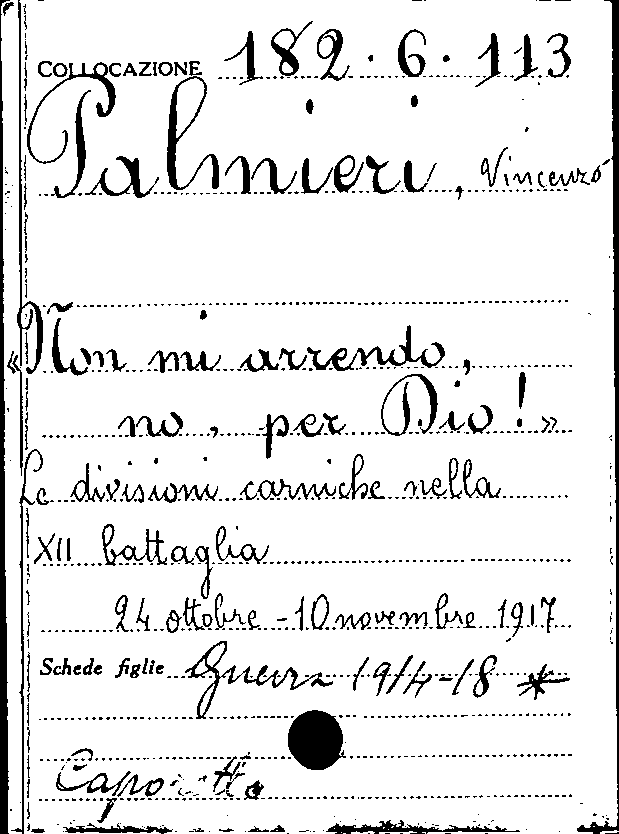 COLLOCAZIONE 182.6.113
Palmieri, Vincenzo
«Non mi arrendo,
no, per Dio!»
Le divisioni carniche nella
XII battaglia
24 ottobre - 10 novembre 1917
Schede figlie Guerra 1914-18 *
Caporetto